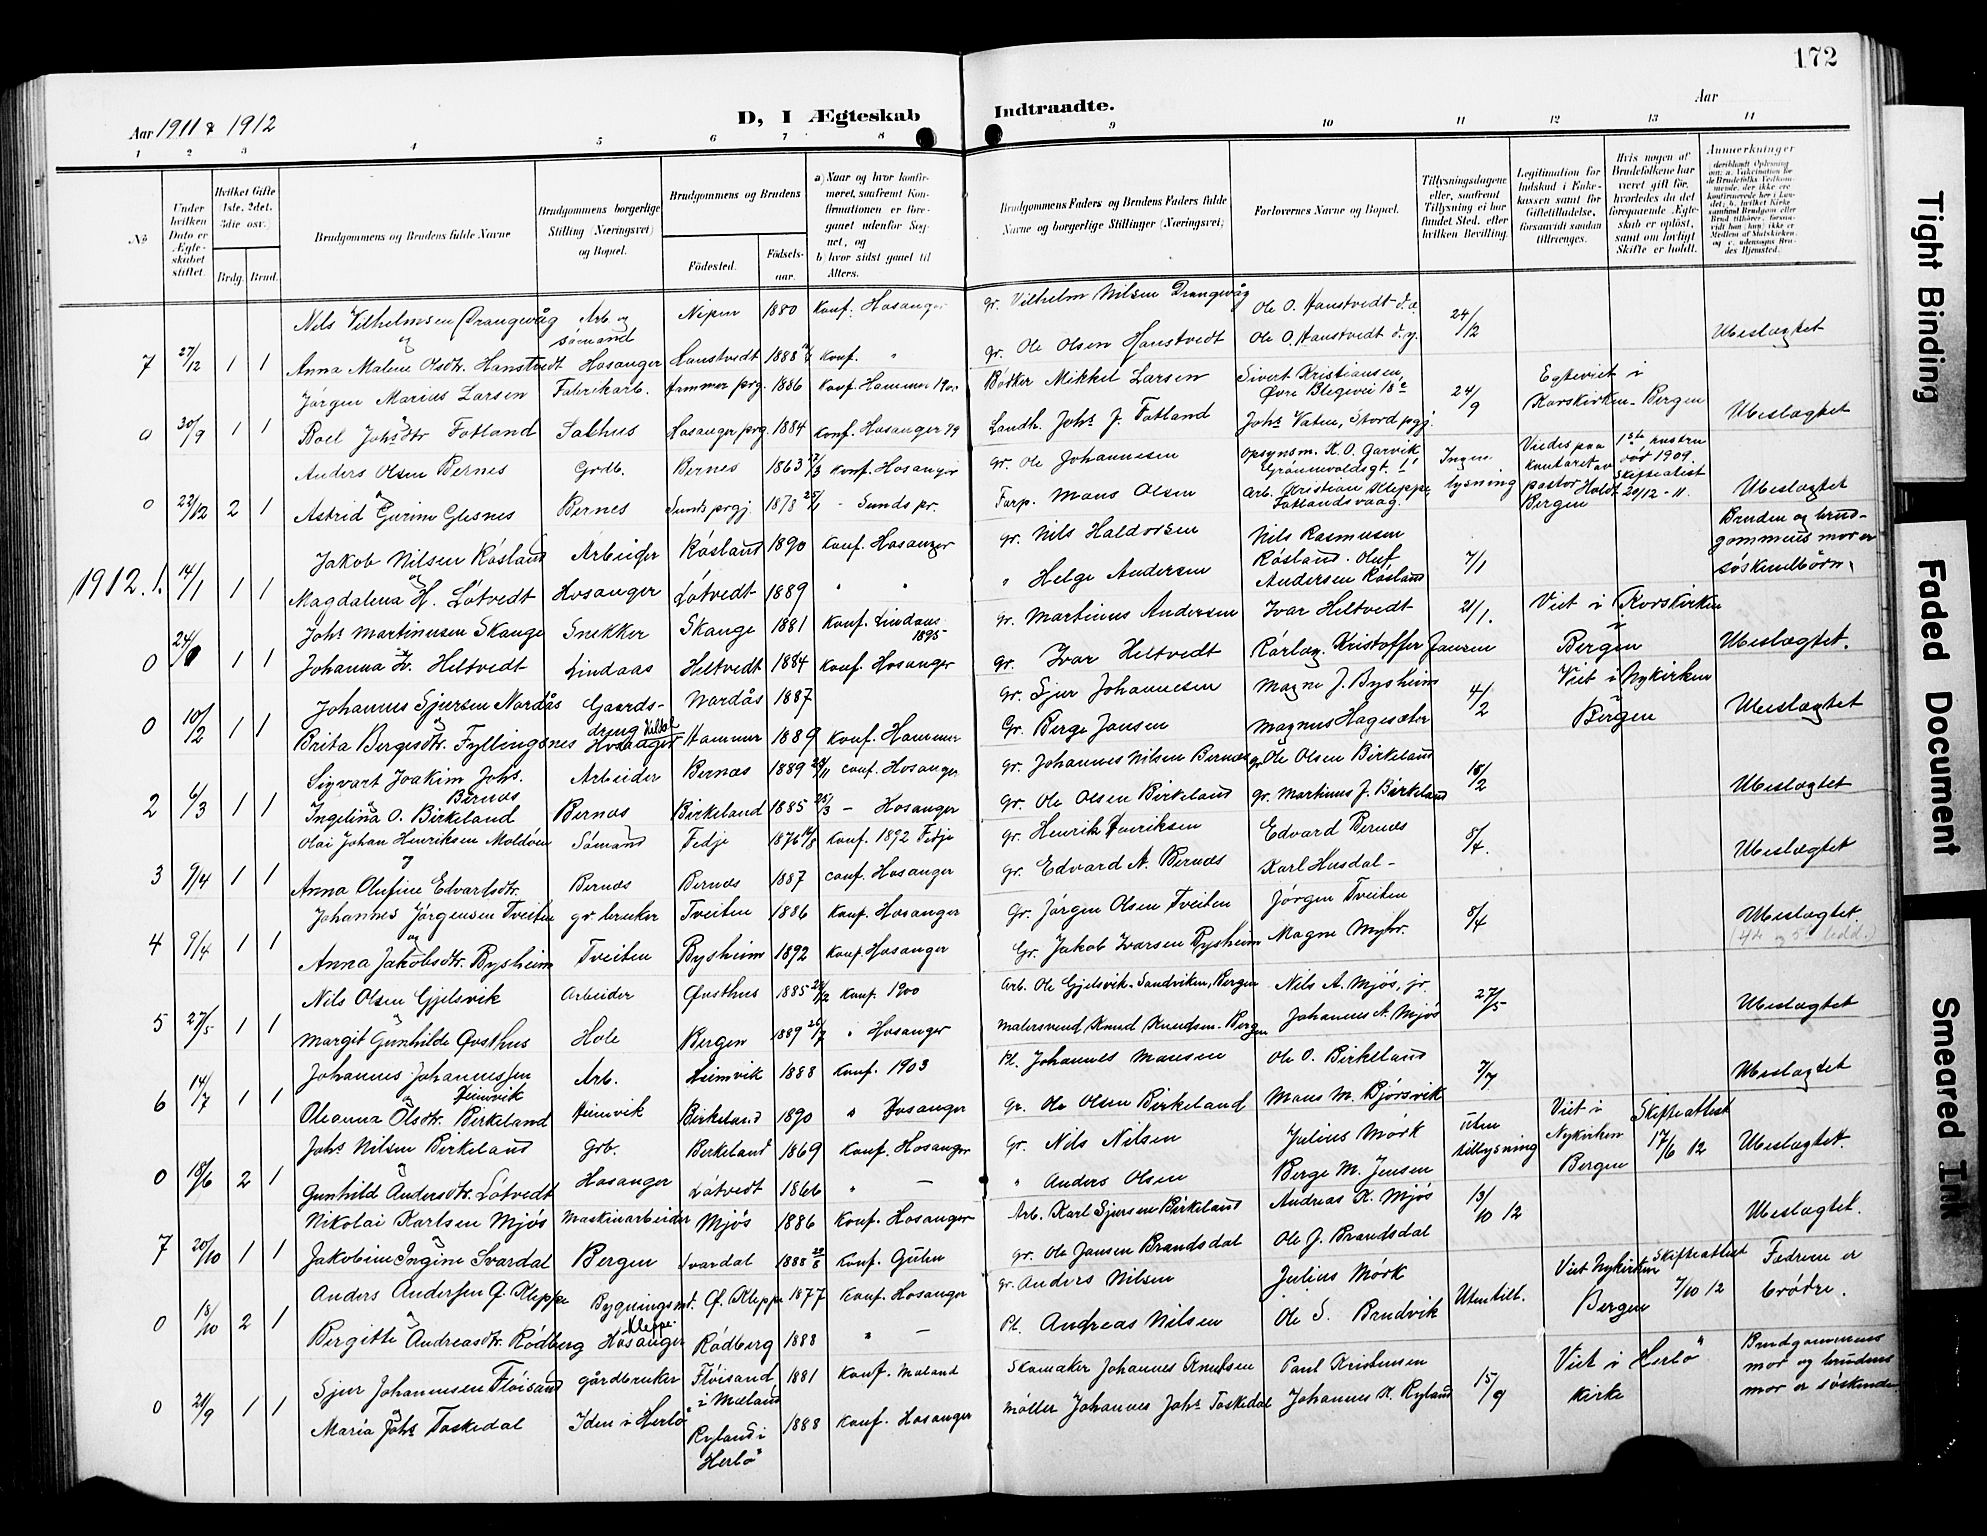 172
Aar 1911 & 1912
D, I Ægteskab Indtraadte.
Aar
1 2 3 4 5 6 7 8 9 10 11 12 13 14
No
Under hvilken Dato er Ægteskabet stiftet.
Hvilket Gifte (1ste, 2det, 3die osv.)
Brdg. Brud.
Brudgommens og Brudens fulde Navne
Brudgommens borgerlige Stilling (Næringsvei) og Bopæl.
Brudgommens og Brudens
Fødested. Fødselsaar.
a) Naar og hvor konfirmeret, saafremt Konfirmationen er foregaaet udenfor Sognet, og
b hvor sidst gaaet til Alters.
Brudgommens Faders og Brudens Faders fulde Navne og borgerlige Stillinger (Næringsvei)
Forlovernes Navne og Bopæl.
Tillysningsdagene eller, saafremt Tillysning ei har fundet Sted, efter hvilken Bevilling.
Legitimation for Indskud i Enkekassen samt for Giftetilladelse, forsaavidt saadan tiltrænges.
Hvis nogen af Brudefolkene har været gift før, hvorledes da det foregaaende Ægteskab er opløst, samt om lovligt Skifte er holdt.
Anmerkninger
Nils Vilhelmsen Drangevåg Arb. og sømand Nipen 1880 Konf. Hosanger gr. Vilhelm Nilsen Drangevåg Ole O. Hanstvedt d.æ.
og
7 27/12 1 1 Anna Malene Olsdtr. Hanstvedt Hosanger Hanstvedt 1888 Konf. " gr. Ole Olsen Hanstvedt Ole O. Hanstvedt d.y. 24/12 Ubeslægtet
Jørgen Marius Larsen Fabrikarb. Hammer prg. 1886 Konf. Hammer Bødker Mikkel Larsen Sivert Kristiansen, Øvre Blegevei 18
0 30/9 1 1 Roel Johsdtr Fotland Salhus Hosanger prg. 1884 Konf. Hosanger 99 Landh. Johs J. Fotland Johs Vatne, Stord pgj. 24/9 Egteviet i Korskirken - Bergen Ubeslægtet
Anders Olsen Bernes Grdb. Bernes 1863 Konf. Hosanger gr. Ole Johannesen opsynsm. K. O. Garvik
0 22/12 2 1 Astrid Gurine Glesnes Bernes Sunds prgj. 1878 - Sunds pr. Farp. Mons Olsen Arb. Kristian Kleppe, Fotlandsvaag. Ingen lysning Viedes paa kontoret av pastor Holdt Bergen 1ste hustru død 1909. Skifteatest 20/12 - 11. Ubeslægtet
Jakob Nilsen Røsland Arbeider Røsland 1890 Konf. Hosanger gr. Nils Haldorsen Nils Rasmusen Røsland. Oluf
1912. 1. 14/1 1 1 Magdalena H. Løtvedt Hosanger Løtvedt 1889 " " " Helge Andersen Andersen Røsland 7/1 Bruden og brudgommens mor er søskendbørn.
Johs Martinusen Skauge Snekker Skauge 1881 Konf. Lindaas 1895 gr. Martinus Andersen Ivar Heltvedt
0 24/ 1 1 Johanna Iv. Heltvedt Lindaas Heltvedt 1884 Konf. Hosanger gr. Ivar Heltvedt Kristoffer Jansen 21/1. Viet i Korskirken Bergen Ubeslægtet.
Johannes Sjursen Nordås Gaardsdreng Nordås 1887 gr. Sjur Johannesen Magne J. Bysheim
0 10/2 1 1 Brita Bergesdtr. Fyllingsnes Hosanger Hammer 1889 Konf. Hammer Gr. Berge Jansen Magnus Hagesæter 4/2 Viet i Nykirken Bergen Ubeslægtet
Sigvart Joakim Johs. Bernes Arbeider Bernæs 1889 conf. Hosanger gr. Johannes Nilsen Bernæs gr. Ole Olsen Birkeland
2 6/3 1 1 Ingelina O. Birkeland Bernæs Birkeland 1885 25/3 - Hosanger gr. Ole Olsen Birkeland gr. Martinus J. Birkeland 18/2 Ubeslægtet
Olai Johan Henriksen Moldøen Sømand Fedje 1876 Konf. 1892 Fedje gr. Henrik Henriksen Edvard Bernæs
3 9/4 1 1 Anna Olufine Edvardsdtr. Bernæs Bernæs 1887 conf. Hosanger gr. Edvard A. Bernæs Karl Husdal - 8/4. Ubeslægtet
Johannes Jørgensen Tveiten gr. bruker Tveiten 1886 Konf. Hosanger Gr. Jørgen Olsen Tveiten Jørgen Tveiten
4 9/4 1 1 Anna Jakobsdtr. Bysheim Tveiten Bysheim 1892 Konf. Hosanger Gr. Jakob Ivarsen Bysheim Magne Myhr. 8/4 Ubeslægtet. (4de og 5te ledd.)
Nils Olsen Gjelsvik Arbeider Øusthus 1885 Konf. 1900 Arb. Ole Gjelsvik - Sandviken, Bergen Nils A. Mjøs, jr.
5 27/5 1 1 Margit Gunhilde Øvsthus Hole Bergen 1889 " Hosanger Malersvend Knud Knudsen - Bergen Johannes A. Mjøs 27/5 Ubeslægtet
Johannes Johannessen Heimvik Arb. Heimvik 1888 Konf. 1903 Pl. Johannes Monsen Ole O. Birkeland
6 14/7 1 1 Oleanna Olsdtr. Birkeland Heimvik Birkeland 1890 " Hosanger Gr. Ole Olsen Birkeland Mons M. Bjørsvik 7/7 Ubeslægtet
Johs Nilsen Birkeland Grb. Birkeland 1869 Konf. Hosanger gr. Nils Nilsen Julius Mørk
0 18/6 2 1 Gunhild Andersdtr. Løtvedt Hosanger Løtvedt 1866 " — " Anders Olsen Berge M. Jensen uten tillysning Viet i Nykirken Bergen Skifteattest 17/6 12 Ubeslægtet.
Nikolai Karlsen Mjøs Maskinarbeider Mjøs 1886 Konf. Hosanger Arb. Karl Sjursen Birkeland Andreas K. Mjøs
7 20/10 1 1 Jakobine Ingine Svardal Bergen Svardal 1888 Konf. Gulen gr. Ole Jansen Brandsdal Ole J. Brandsdal 13/10 12 Ubeslægtet.
Anders Andersen Ø. Kleppe Bygningsm. Ø. Kleppe 1877 Konf. Hosanger gr. Anders Nilsen Julius Mørk
0 13/10 2 1 Bergitte Andreasdtr. Rødberg Kleppe Hosanger Rødberg 1888 " — Pl. Andreas Nilsen Ole S. Brudvik Uten till. Viet Nykirken Bergen Skifteattest 7/10 12 Fedrene er brødre.
Sjur Johannesen Fløisand gårdbruker Fløisand i Mæland 1881 Konf. Mæland Skomaker Johannes Knutsen Paul Kristensen
0 21/9 1 1 Maria Johs Toskedal Iden i Herlø Ryland i Herlø 1888 Konf. Hosanger Møller Johannes Johs Toskedal Johannes K. Ryland 15/9 Viet i Herlø kirke Brudgommens mor og brudens mor er søskende
Tight Binding
Faded Document
Smeared Ink